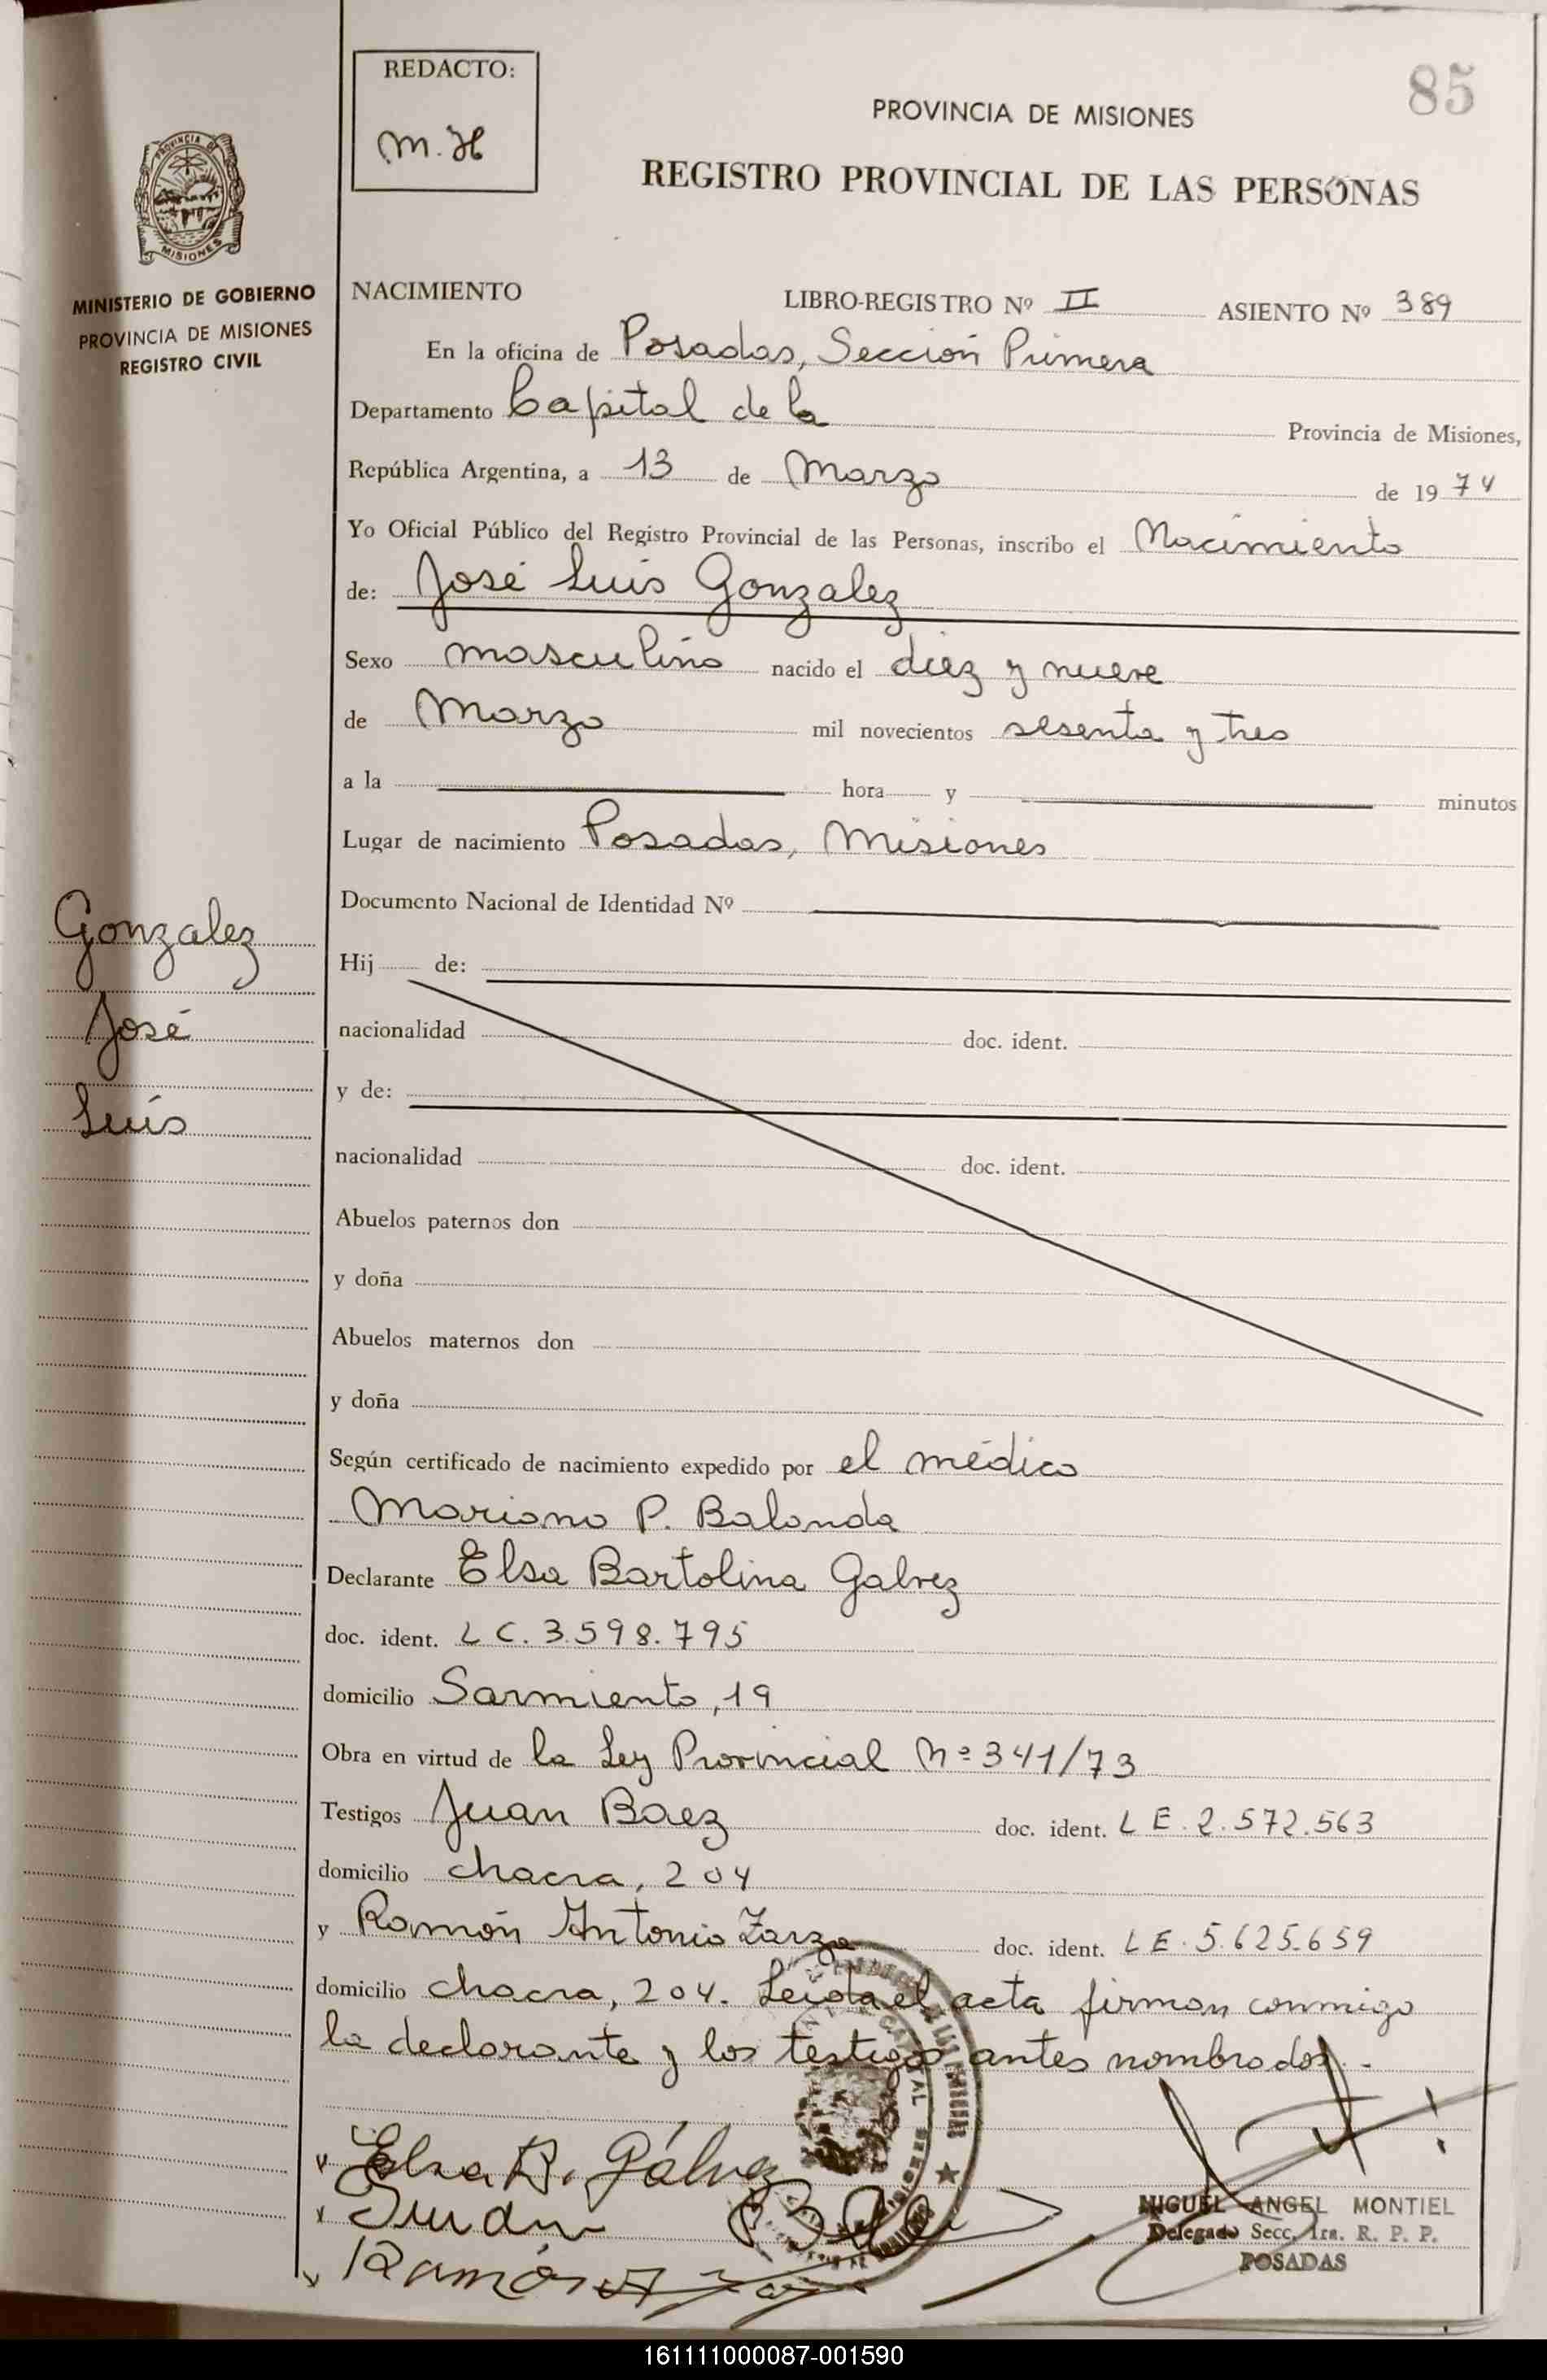 REDACTO:
M. H
85
PROVINCIA DE MISIONES
REGISTRO PROVINCIAL DE LAS PERSONAS
PROVINCIA DE
MISIONES
MINISTERIO DE GOBIERNO
PROVINCIA DE MISIONES
REGISTRO CIVIL
NACIMIENTO LIBRO-REGISTRO Nº II ASIENTO Nº 389
En la oficina de Posadas, Sección Primera
Departamento Capital de la Provincia de Misiones,
República Argentina, a 13 de Marzo de 1974
Yo Oficial Público del Registro Provincial de las Personas, inscribo el Nacimiento
de: José Luis Gonzalez
Sexo masculino nacido el diez y nueve
de Marzo mil novecientos sesenta y tres
a la hora y minutos
Lugar de nacimiento Posadas, Misiones
Documento Nacional de Identidad Nº
Gonzalez
José
Luis
Hij de:
nacionalidad doc. ident.
y de:
nacionalidad doc. ident.
Abuelos paternos don
y doña
Abuelos maternos don
y doña
Según certificado de nacimiento expedido por el médico
Mariano P. Balonda
Declarante Elsa Bartolina Galvez
doc. ident. L C. 3.598.795
domicilio Sarmiento, 19
Obra en virtud de la Ley Provincial Nº 341/73
Testigos Juan Baez doc. ident. L E. 2.572.563
domicilio chacra, 204
y Ramón Antonio Zarza doc. ident. L E. 5.625.659
domicilio chacra, 204. Leída el acta firman conmigo
la declarante y los testigos antes nombrados.-
Elsa B. Gálvez
Juan
Ramón A
MIGUEL ANGEL MONTIEL
Delegado Secc. 1ra. R. P. P.
POSADAS
161111000087-001590